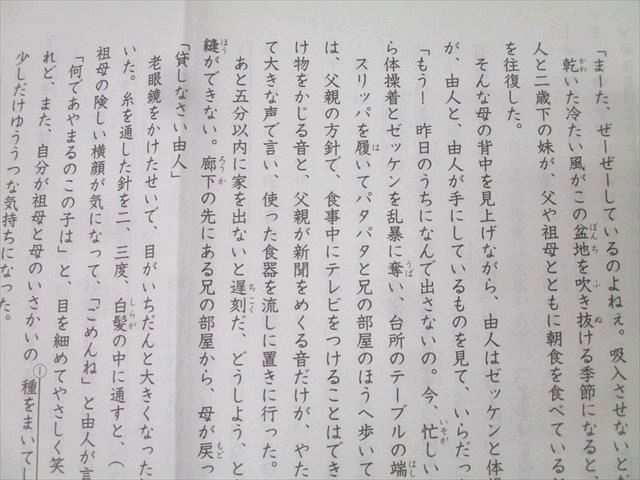 「まーた、ぜーぜーしているのよねえ。吸入させないとだ
乾いた冷たい風がこの盆地を吹き抜ける季節になると、
人と二歳下の妹が、父や祖母とともに朝食を食べている
を往復した。
そんな母の背中を見上げながら、由人はゼッケンと体操
が、由人と、由人が手にしているものを見て、いらだっ
「もう! 昨日のうちになんで出さないの。今、忙しい
ら体操着とゼッケンを乱暴に奪い、台所のテーブルの端
スリッパを履いてパタパタと兄の部屋のほうへ歩いて
は、父親の方針で、食事中にテレビをつけることはでき
け物をかじる音と、父親が新聞をめくる音だけが、やた
て大きな声で言い、使った食器を流しに置きに行った。
あと五分以内に家を出ないと遅刻だ、どうしよう、と
縫ができない。廊下の先にある兄の部屋から、母が戻っ
「貸しなさい由人」
老眼鏡をかけたせいで、目がいちだんと大きくなった
いた。糸を通した針を二、三度、白髪の中に通すと、(
祖母の険しい横顔が気になって、「ごめんね」と由人が言
「何であやまるのこの子は」と、目を細めてやさしく笑
れど、また、自分が祖母と母のいさかいの①種をまいてし
少しだけゆううつな気持ちになった。